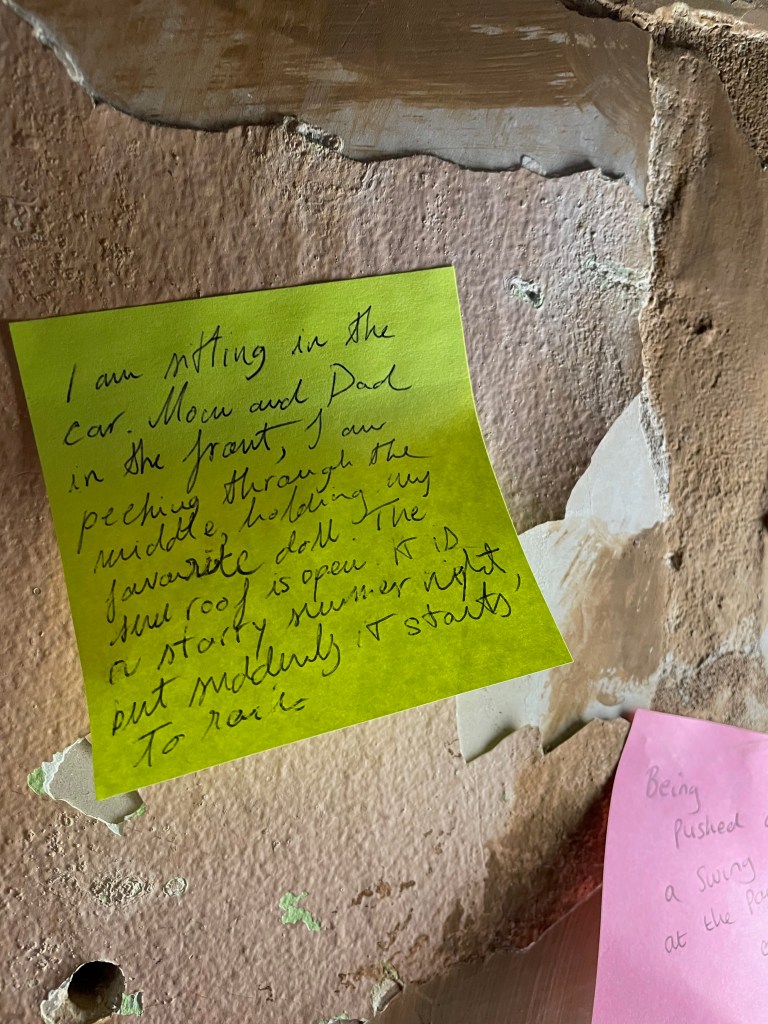 I am sitting in the
car. Mom and Dad
in the front, I am
peeking through the
middle, holding my
favourite doll. The
sun roof is open. It is
a starry summer night,
but suddenly it starts,
to rain
Being
Pushed
a Swing
at the